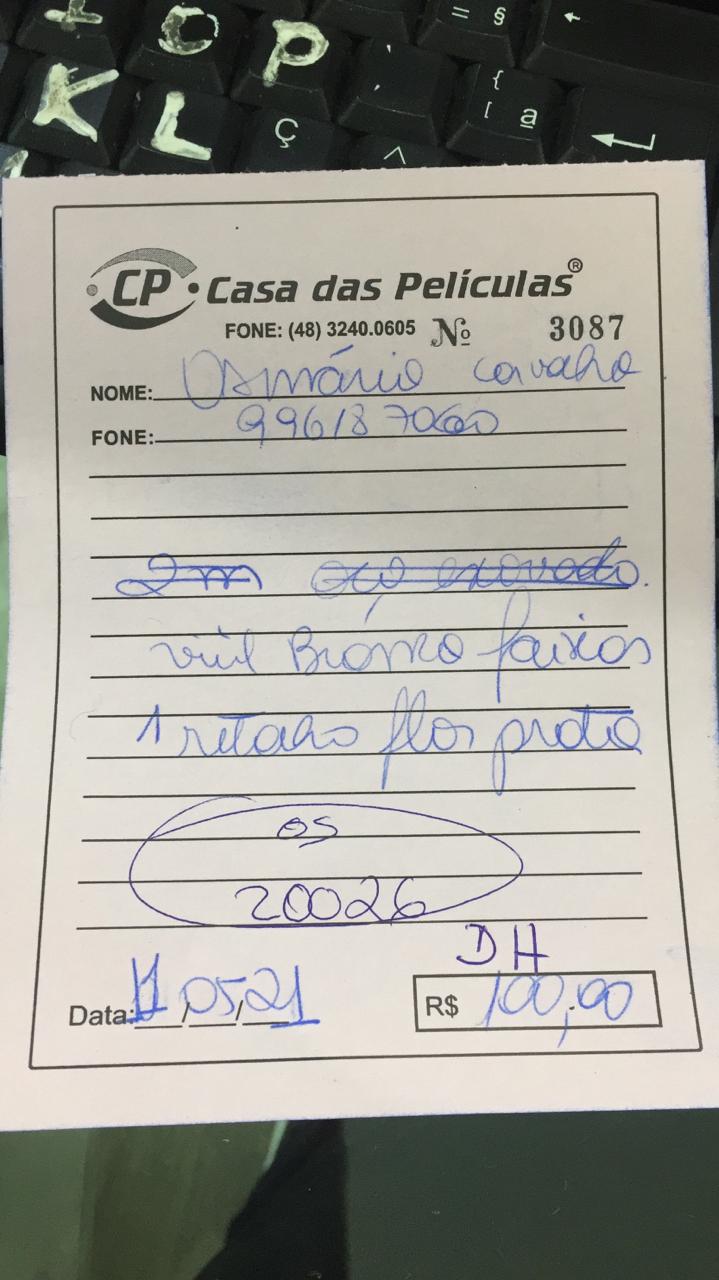 I O P = §
K L Ç ^ { [ ª
CP Casa das Películas®
FONE: (48) 3240.0605 Nº 3087
NOME: Osmário Carvalho
FONE: 996187060
2m
vinil Branco faixas
1 retalho flor prata
OS
20026
DH
Data: 11/05/21 R$ 100,00